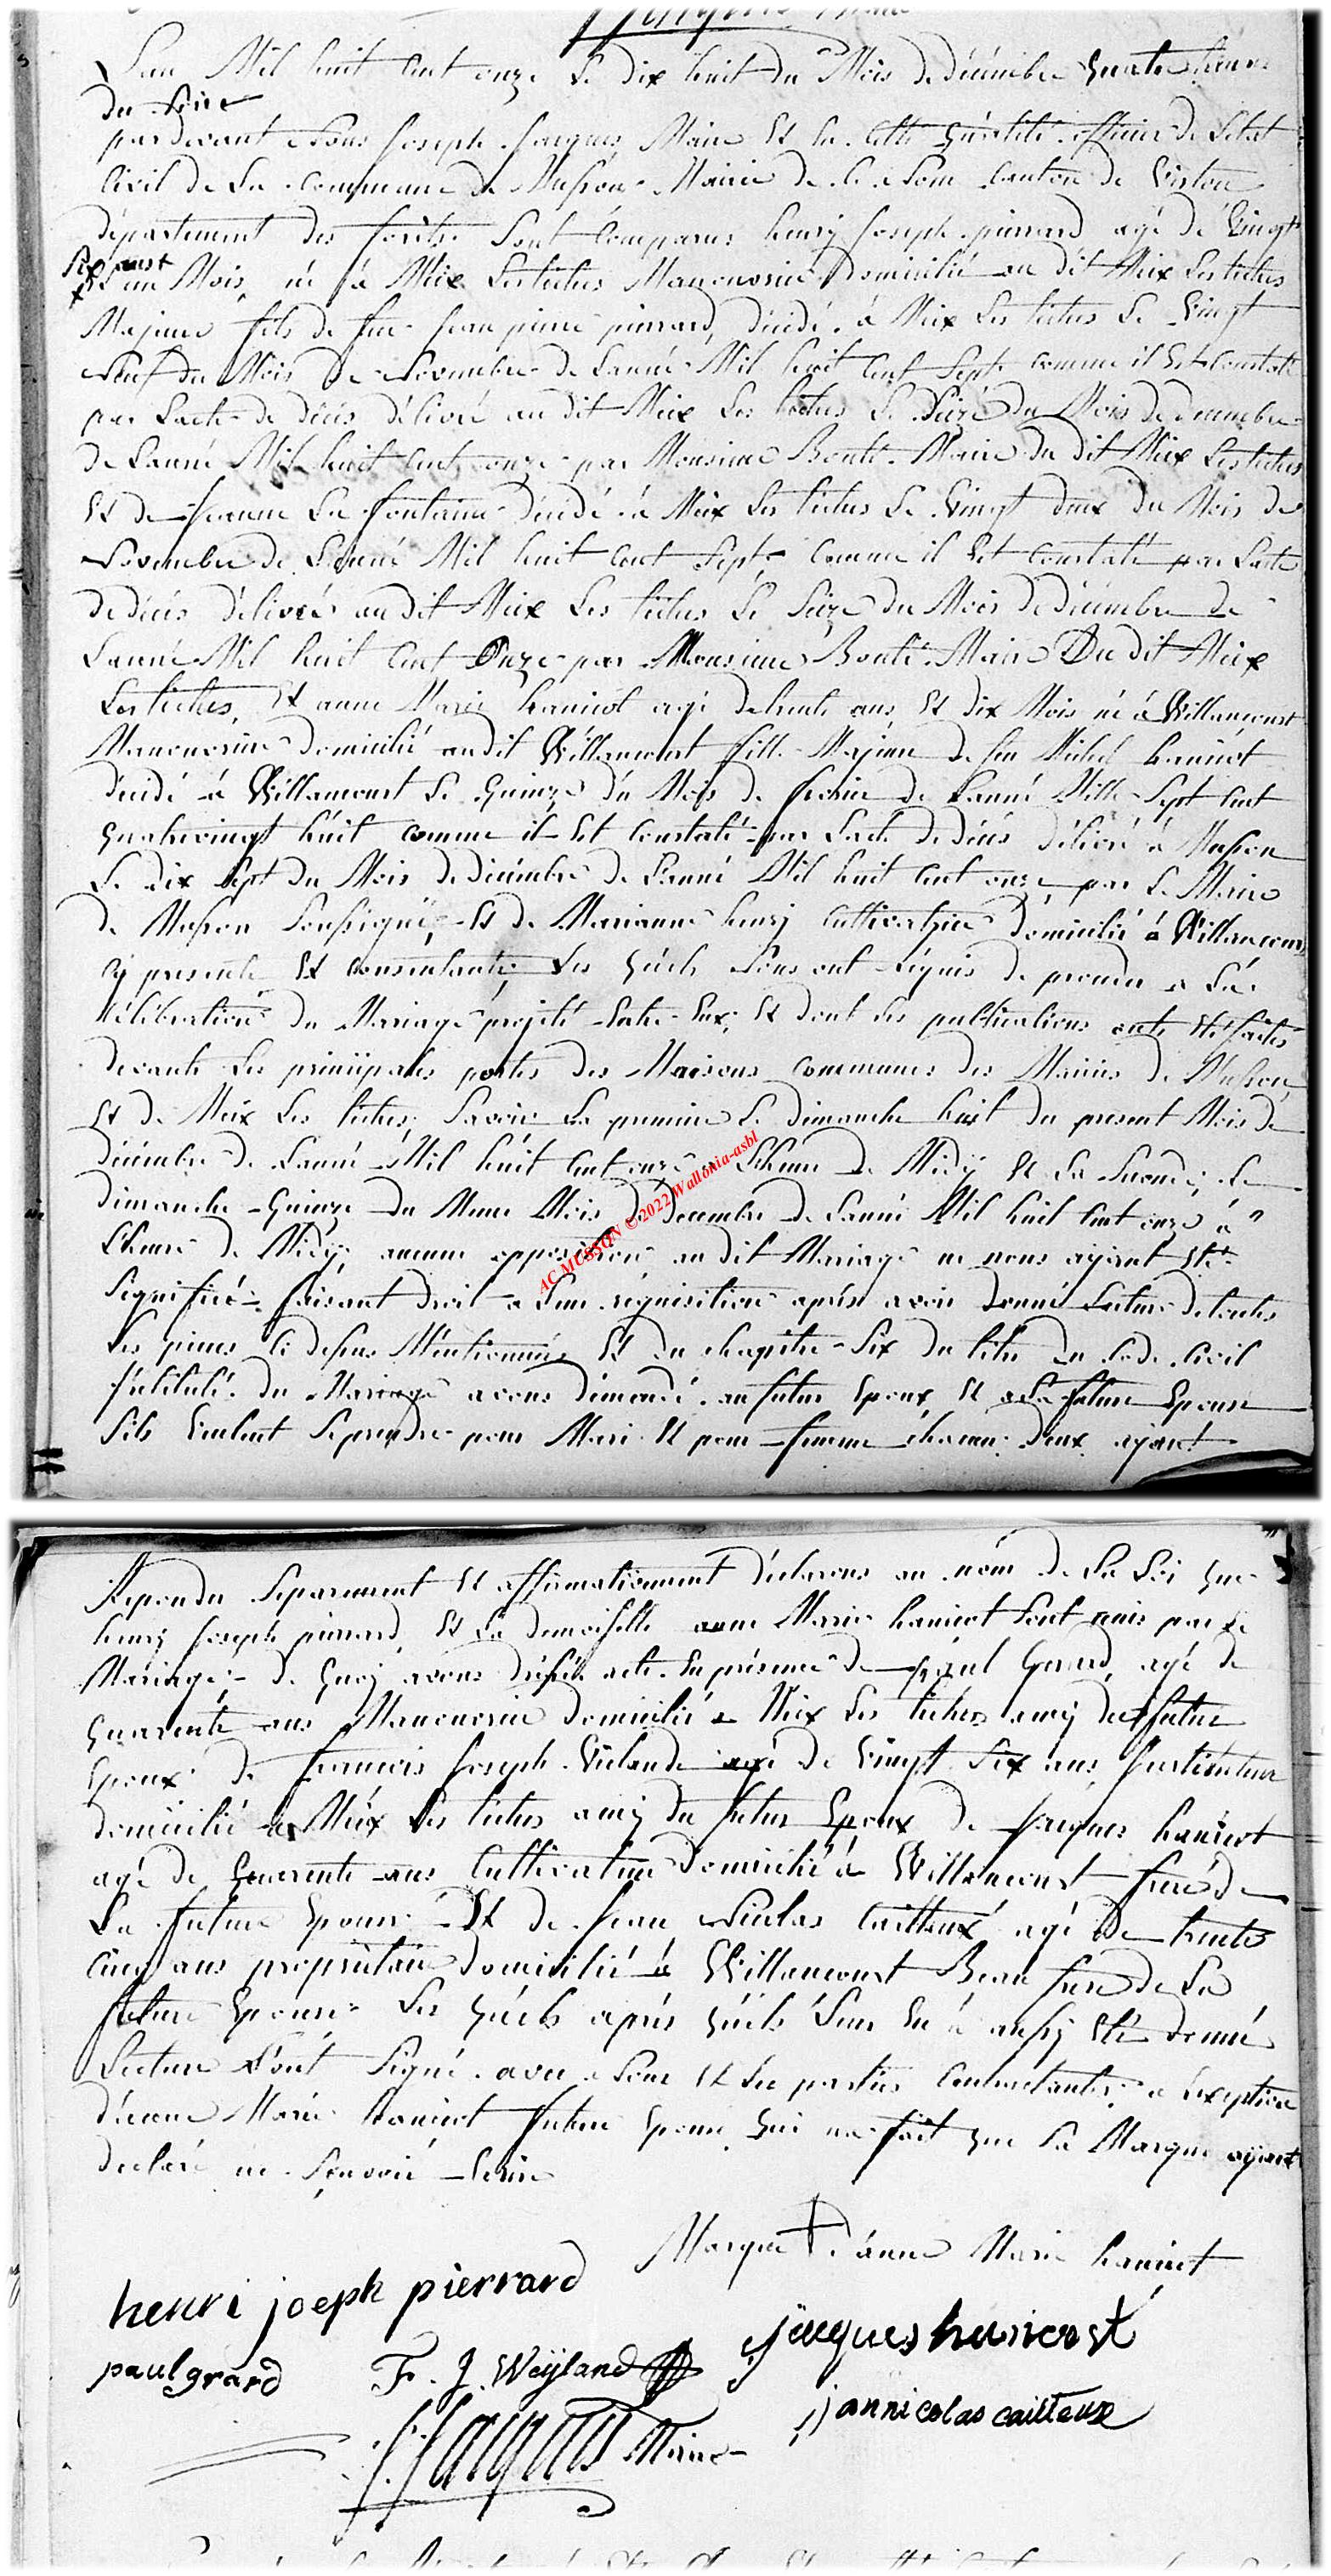 Lan Mil huit Cent onze Le dix huit du Mois de décembre quatre heures
du Soire
pardevant Nous Joseph Jacques Maire Et en Cette quâlité officier de Letat
Civil de La Commune de Musson Mairie de Ce Nom Canton de Virton
département des forêts Sont Comparus henry Joseph pierrard agé dé Vingt
Six anst
Et un Mois, né à Meix Lestiches Manouvrier Domicilié au dit Meix Lestiches
Majeure fils de feu Jean pierre pierrard, décidé à Meix Les tiches Le Vingt
Neuf du Mois De Novembre de Lanné Mil huit Cent Sept Comme il Est Constaté
par Lacte de dêcés délivré au dit Meix Les tiches Le Seize du Mois de decembre
de Lanné Mil huit Cent onze par Monsieur Bonté Maire du dit Meix Les tiches
Et de Jeanne La fontaine décidé à Meix Les tiches Le Vingt deux du Mois de
Novembre de Lanné Mil huit Cent Sept Comme il Est Constaté par Lacte
de décés délivré au dit Meix Les tiches Le Seize du Mois de décembre de
Lanné Mil huit Cent Onze par Monsieur Bonté Maire Du dit Meix
Les tiches, Et anne Marie hanicot agé de trente ans Et dix Mois né à Villancourt
Manouvrier domicilié audit Villancourt fille Majeure de feu Michel hanicot
décidé à Villancourt Le Quinze du Mois de fevrier de Lanné Mille Sept Cent
quatrevingt huit comme il Est Constaté par Lacte de décés délivré à Musson
Le dix Sept du Mois de décembre de Lanné Mil huit Cent onze par Le Maire
de Musson Soussigné, Et de Marianne henry Cultivatrice domicilié à Villancourt
Cy presente Et consentante; Les quéls Nous ont réquis de proceder a La
Célébration du Mariage projété Entre Eux; Et dont Les publications onts Eté faites
devants Les principales portes des Maisons Communes des Mairies de Musson
Et de Meix Les tiches; Savoir La premiere Le dimanche huit du present Mois de
décembre de Lanné Mil huit Cent onze a Lheure de Midÿ Et La Seconde; Le
dimanche Quinze du Meme Mois de Decembre de Lanné Mil huit Cent onze à
Lheure de Midÿ; aucune opposition au dit Mariage ne nous ayant Eté
Signifié faisant droit a Leur réquisition aprés avoir Donné Lecture de toutes
Les pieces Ci dessus Mentionnés Et du chapitre Six du titre du Code Civil
Intitulé du Mariage avons démandé au futur Epoux Et a La future Epouse
Sils Veulent Se prendre pour Mari Et pour femme chacun D'eux ayant
AC MUSSON © 2022 Wallonia-asbl
Repondu Séparement Et affirmativement déclarons au nom de La Loi que
henry Joseph pierrard Et La demoiselle anne Marie hanicot Sont unis par Le
Mariage de quoi avons dréssé acte En présence de paul Gerard, agé de
quarente ans Manouvrier Domicilié a Meix Les tiches amÿ du futur
Epoux de francois Joseph Veilande agé de Vingt Six ans Instituteur
domicilié à Meix Les tiches amÿ du futur Epoux de Jacques hanicot
agé de quarente ans Cultivateur domicilié à Villancourt frere de
La future Epouse Et de Jean Nicolas Cailteux agé De trente
Cinq ans propriétaire domicilié à Villancourt Beau frere de La
future Epouse Les quéls aprés quéils Leur En à aussy Eté donné
Lecture L'ont Signé avec Nous Et Les parties Contractantes a L'exeption
dánne Marie hanicot future Epouse qui na fait que Sa Marque ayant
declaré ne Sçavoir Ecrire
Marque d'anne Marie hanicot
henri joeph pierrard
jacques hanicost
paul grard
F. J. Weÿland
jannicolas cailteux
J. Jacques Maire